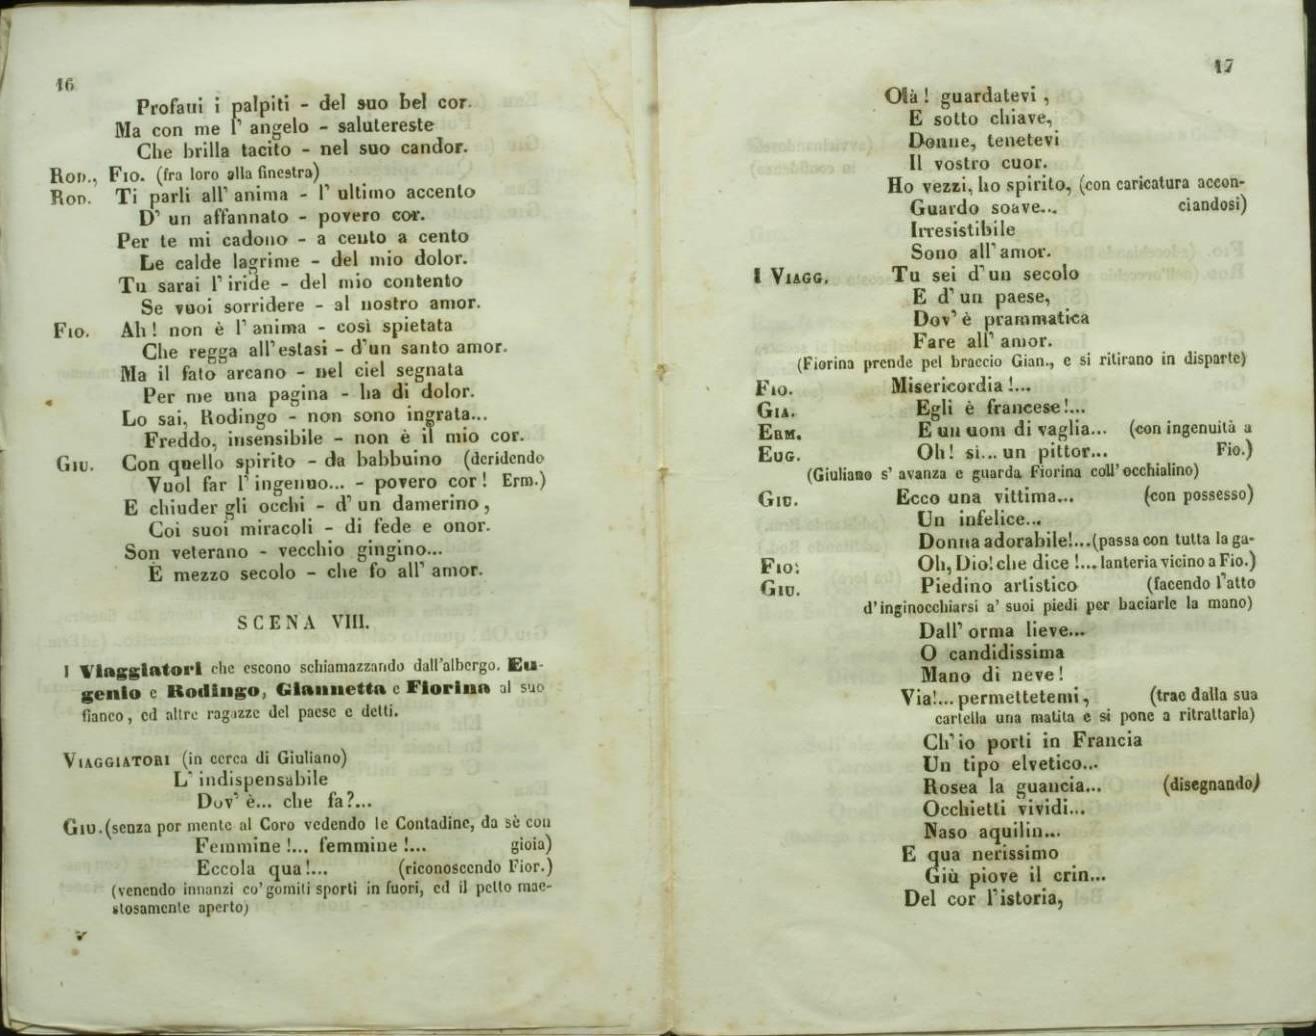 16
Profani i palpiti - del suo bel cor.
Ma con me l' angelo - salutereste
Che brilla tacito - nel suo candor.
Rod., Fio. (fra loro alla finestra)
Rod. Ti parli all' anima - l' ultimo accento
D' un affannato - povero cor.
Per te mi cadono - a cento a cento
Le calde lagrime - del mio dolor.
Tu sarai l' iride - del mio contento
Se vuoi sorridere - al nostro amor.
Fio. Ah! non è l' anima - così spietata
Che regga all' estasi - d'un santo amor.
Ma il fato arcano - nel ciel segnata
Per me una pagina - ha di dolor.
Lo sai, Rodingo - non sono ingrata...
Freddo, insensibile - non è il mio cor.
Giu. Con quello spirito - da babbuino (deridendo
Vuol far l' ingenuo... - povero cor! Erm.)
E chiuder gli occhi - d' un damerino,
Coi suoi miracoli - di fede e onor.
Son veterano - vecchio gingino...
È mezzo secolo - che fo all' amor.
SCENA VIII.
I Viaggiatori che escono schiamazzando dall'albergo. Eu-
genio e Rodingo, Giannetta e Fiorina al suo
fianco, ed altre ragazze del paese e detti.
Viaggiatori (in cerca di Giuliano)
L' indispensabile
Dov' è... che fa?...
Giu. (senza por mente al Coro vedendo le Contadine, da sè con
Femmine!... femmine!... gioia)
Eccola qua!... (riconoscendo Fior.)
(venendo innanzi co' gomiti sporti in fuori, ed il petto mae-
stosamente aperto)
17
Olà! guardatevi,
E sotto chiave,
Donne, tenetevi
Il vostro cuor.
Ho vezzi, ho spirito, (con caricatura accon-
Guardo soave... ciandosi)
Irresistibile
Sono all' amor.
I Viagg. Tu sei d' un secolo
E d' un paese,
Dov' è prammatica
Fare all' amor.
(Fiorina prende pel braccio Gian., e si ritirano in disparte)
Fio. Misericordia!...
Gia. Egli è francese!...
Erm. E un uom di vaglia... (con ingenuità a
Eug. Oh! sì... un pittor... Fio.)
(Giuliano s' avanza e guarda Fiorina coll' occhialino)
Giu. Ecco una vittima... (con possesso)
Un infelice...
Donna adorabile!...(passa con tutta la ga-
Fio. Oh, Dio! che dice!... lanteria vicino a Fio.)
Giu. Piedino artistico (facendo l'atto
d'inginocchiarsi a' suoi piedi per baciarle la mano)
Dall' orma lieve...
O candidissima
Mano di neve!
Via!... permettetemi, (trae dalla sua
cartella una matita e si pone a ritrattarla)
Ch' io porti in Francia
Un tipo elvetico...
Rosea la guancia... (disegnando)
Occhietti vividi...
Naso aquilin...
E qua nerissimo
Giù piove il crin...
Del cor l'istoria,